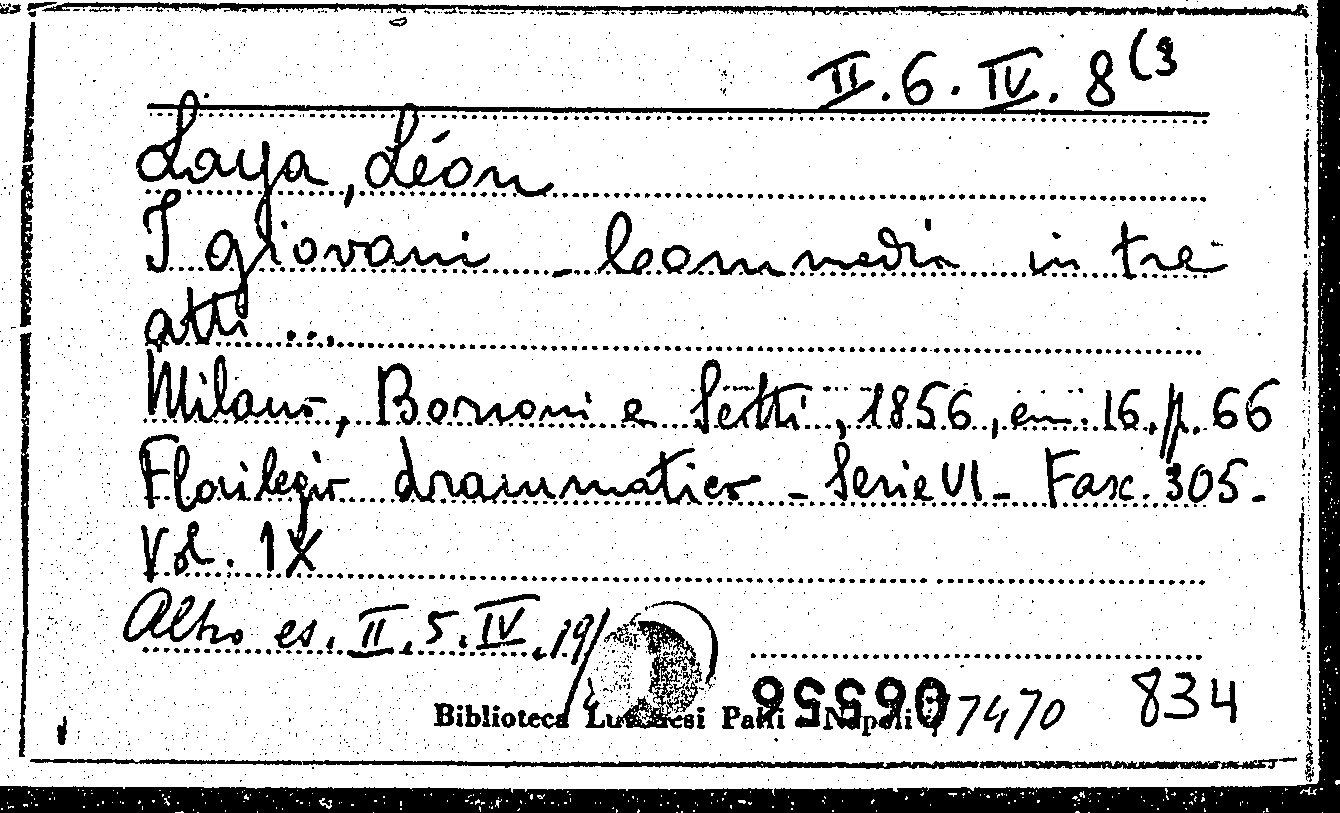 II.6.IV.8(3
Laya, Léon
I giovani - Commedia in tre
atti ...
Milano, Borroni e Scotti, 1856, em. 16. p. 66
Florilegio drammatico - Serie VI - Fasc. 305 -
Vol. IX
Altro es. II.5.IV.19/
Biblioteca Lucchesi Palli - Napoli 7470 834